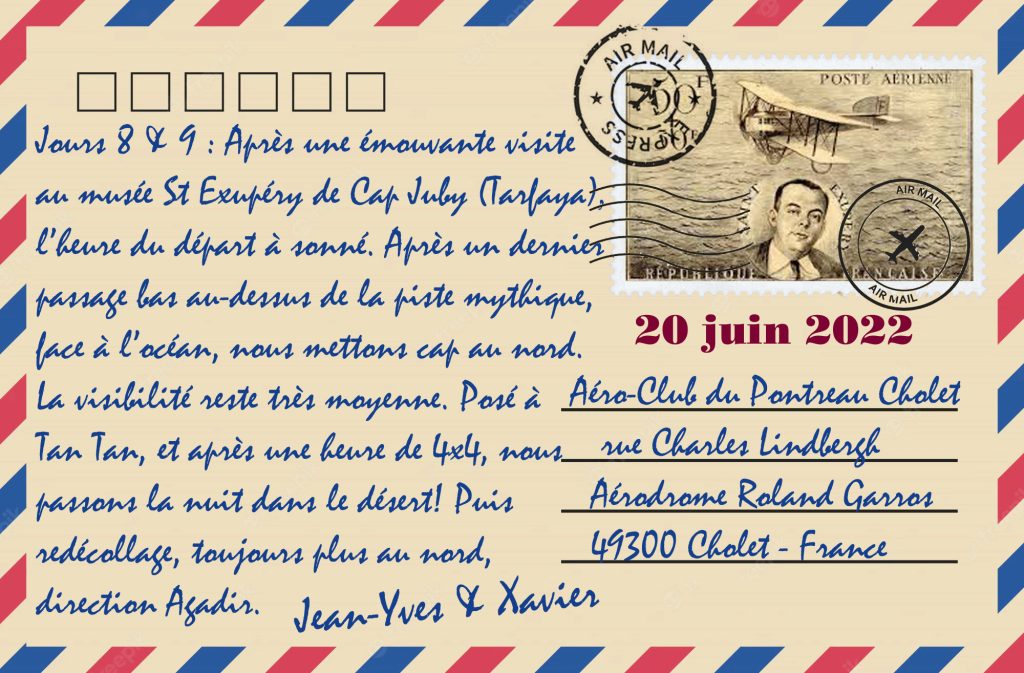 Jours 8 & 9 : Après une émouvante visite
au musée St Exupéry de Cap Juby (Tarfaya),
l'heure du départ à sonné. Après un dernier
passage bas au-dessus de la piste mythique,
face à l'océan, nous mettons cap au nord.
La visibilité reste très moyenne. Posé à
Tan Tan, et après une heure de 4x4, nous
passons la nuit dans le désert! Puis
redécollage, toujours plus au nord,
direction Agadir.
Jean-Yves & Xavier
AIR MAIL
EXPRESS
POSTE AÉRIENNE
SAINT
EXUPÉRY
RÉPUBLIQUE FRANÇAISE
AIR MAIL
AIR MAIL
20 juin 2022
Aéro-Club du Pontreau Cholet
rue Charles Lindbergh
Aérodrome Roland Garros
49300 Cholet - France